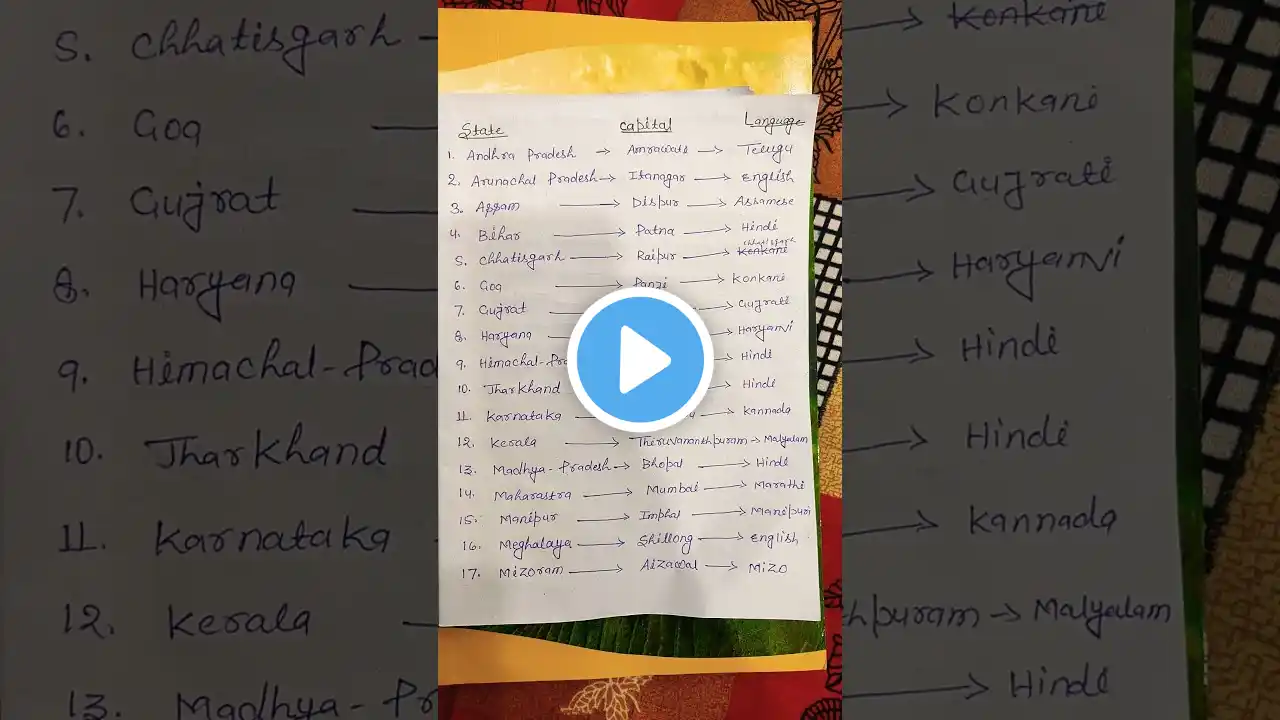 State capital Language
1. Andhra Pradesh → Amrawati → Telugu
2. Arunachal Pradesh → Itanagar → English
3. Assam → Dispur → Assamese
4. Bihar → Patna → Hindi
5. Chhatisgarh → Raipur → Konkani chhatisgarh
6. Goa → Panji → Konkani
7. Gujrat → Gujrati
8. Haryana → Haryanvi
9. Himachal-Pra → Hindi
10. Jharkhand → Hindi
11. Karnataka → Kannada
12. Kerala → Thiruvananthpuram → Malyalam
13. Madhya-Pradesh → Bhopal → Hindi
14. Maharastra → Mumbai → Marathi
15. Manipur → Imphal → Manipuri
16. Meghalaya → Shillong → English
17. Mizoram → Aizawal → Mizo
5. Chhatisgarh Konkani
6. Goa → Konkani
7. Gujrat → Gujrati
8. Haryana → Haryanvi
9. Himachal-Prad → Hindi
10. Jharkhand → Hindi
11. Karnataka → Kannada
12. Kerala thpuram → Malyalam
13. Madhya-Pr → Hindi